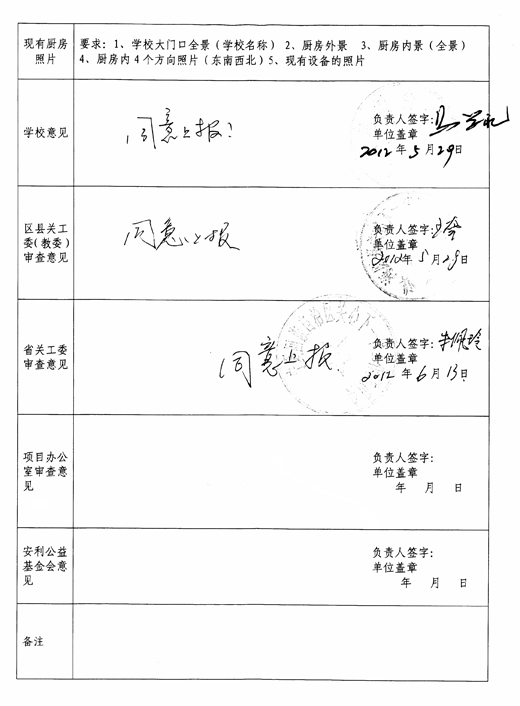 现有厨房
照片
要求：1、学校大门口全景（学校名称） 2、厨房外景 3、厨房内景（全景）
4、厨房内4个方向照片（东南西北）5、现有设备的照片
学校意见
同意上报！
负责人签字：
单位盖章
2012年5月29日
区县关工
委（教委）
审查意见
同意上报
负责人签字：
单位盖章
2012年5月29日
省关工委
审查意见
同意上报
负责人签字：
单位盖章
2012年6月13日
项目办公
室审查意
见
负责人签字：
单位盖章
年 月 日
安利公益
基金会意
见
负责人签字：
单位盖章
年 月 日
备注